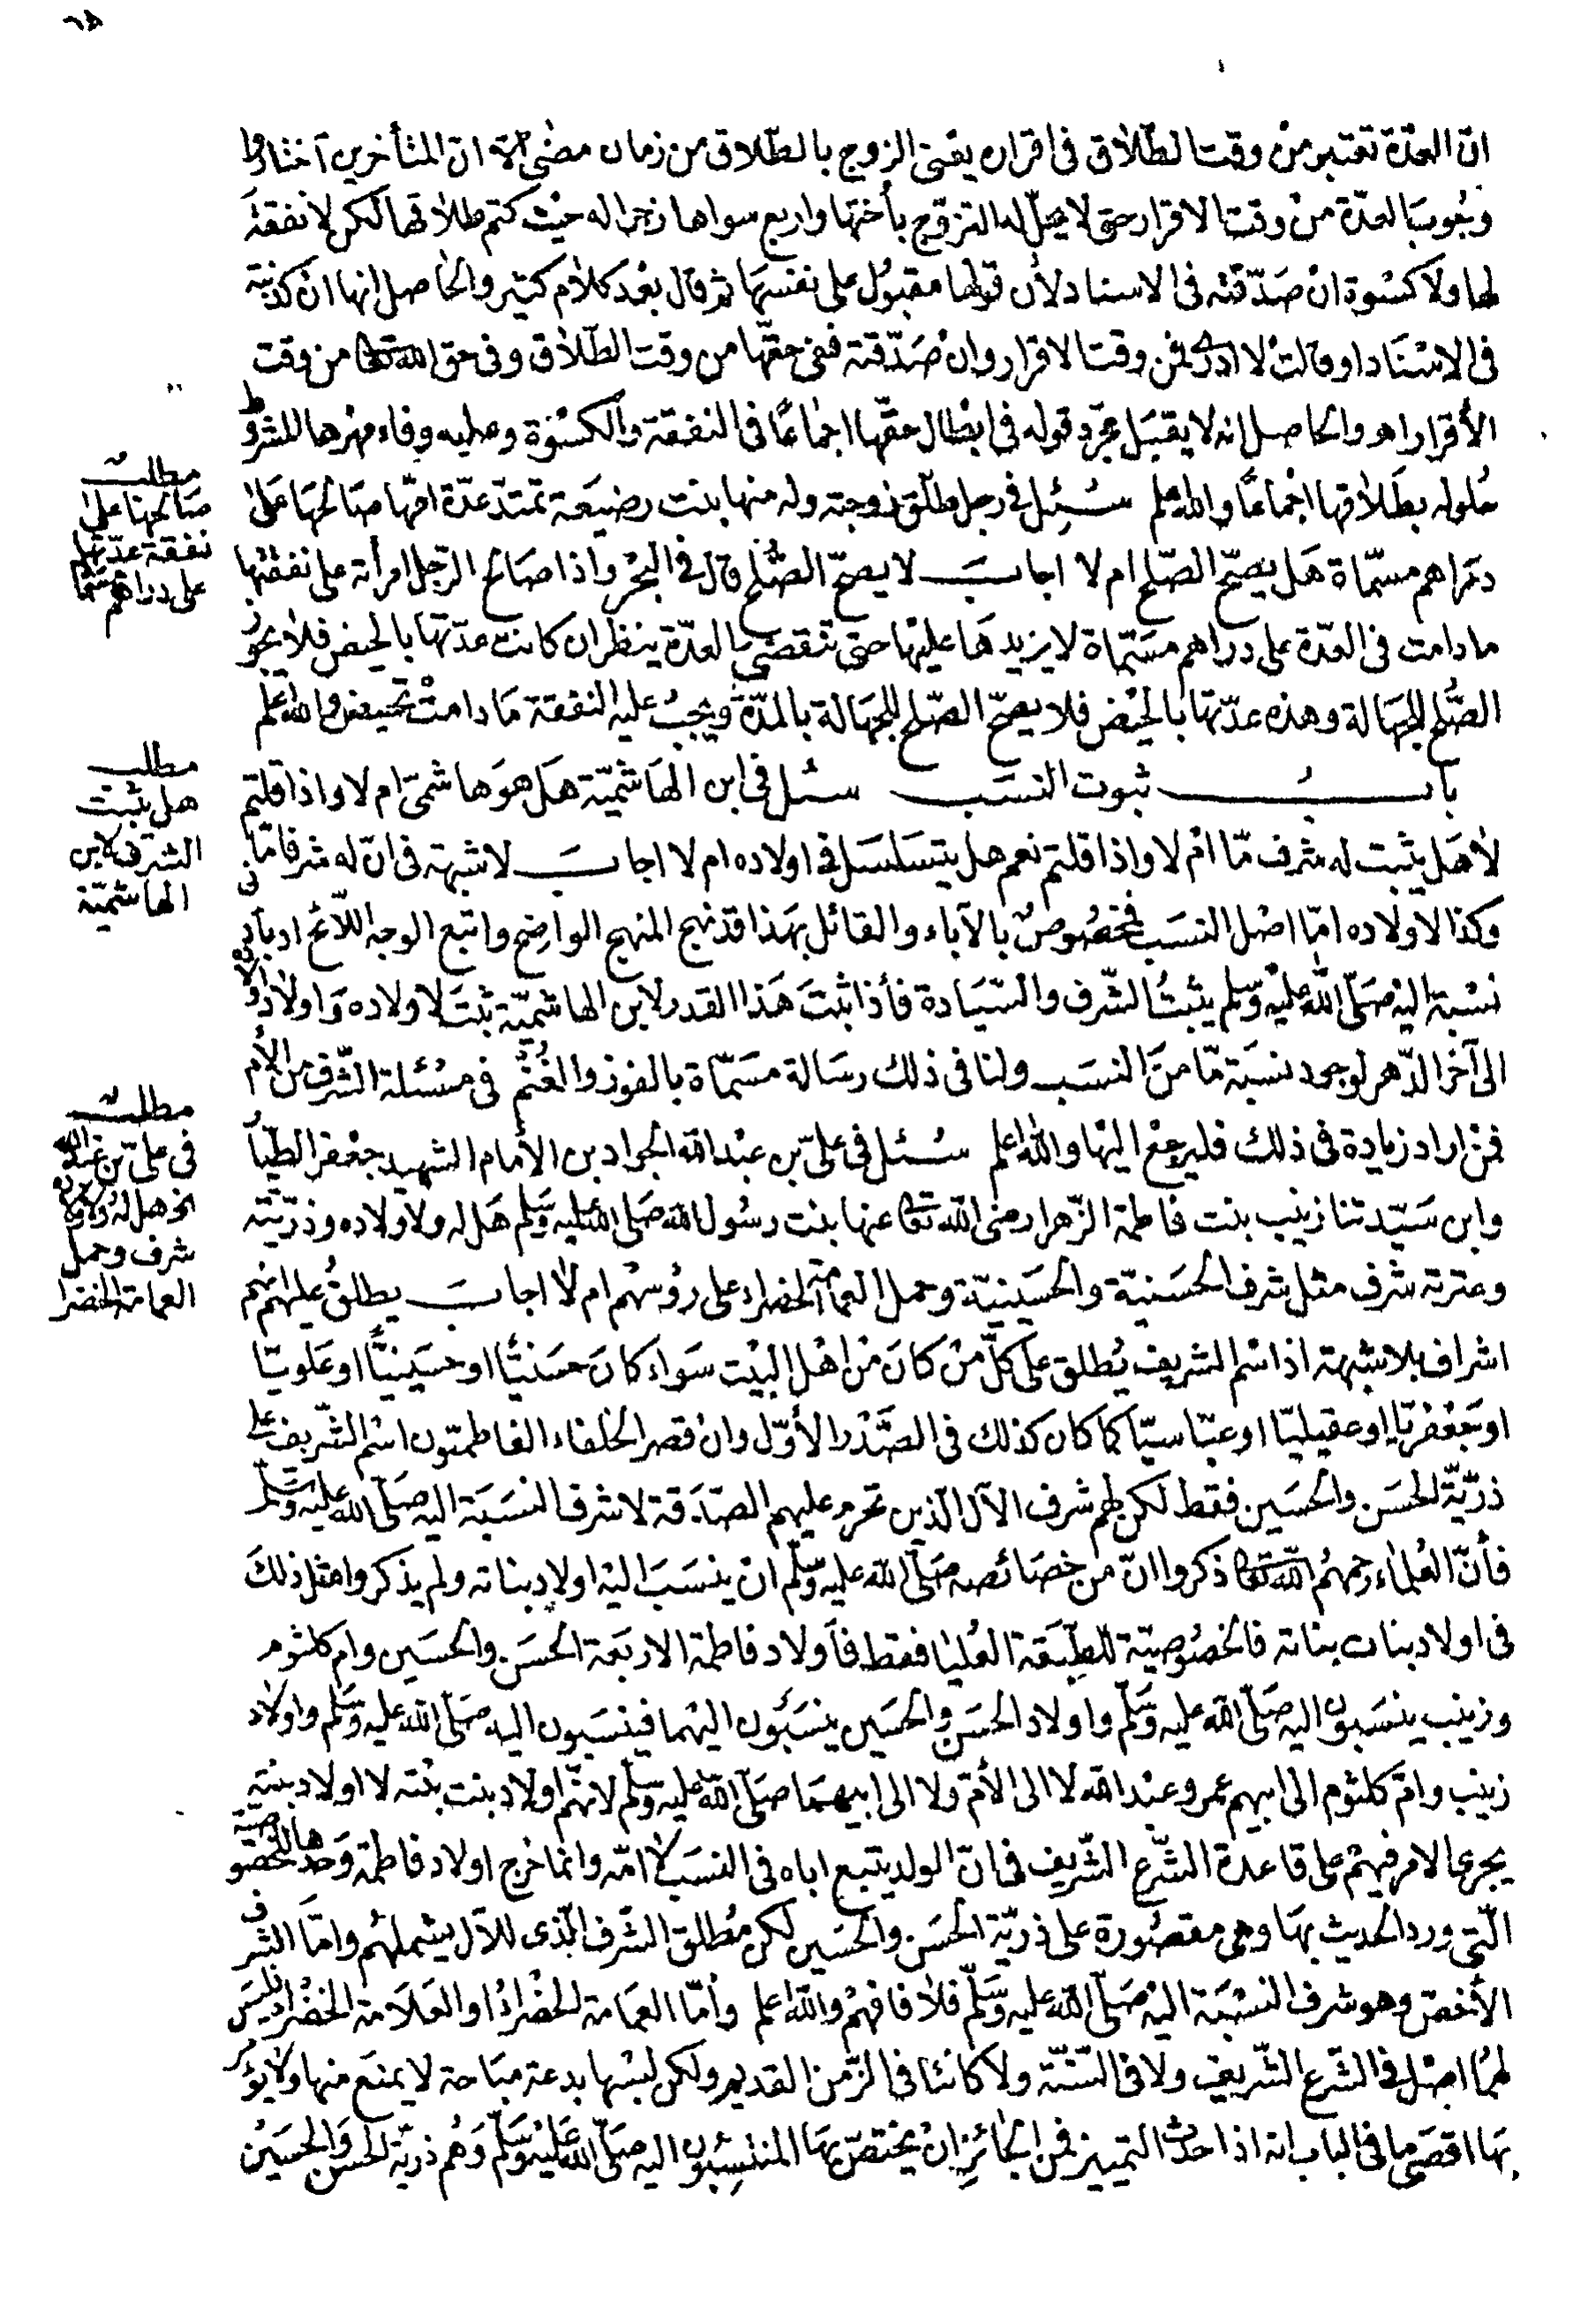 ان العدة تعتبر من وقت الطلاق في اقران يعني الزوج بالطلاق من زمان مضى الا ان المتأخرين اختاروا
وجوب العدة من وقت الاقرار حتى لا يحل له التزوج بأختها واربع سواها زجرا له حيث كتم طلاقها لكن لا نفقة
لها ولا كسوة ان صدقته في الاسناد لأن قولها مقبول على نفسها ثم قال بعد كلام كثير والحاصل انها ان كذبته
في الاسناد او قالت لا ادري فمن وقت الاقرار وان صدقته ففي حقها من وقت الطلاق وفي حق الله تعالى من وقت
الأقرار اهـ والحاصل انه لا يقبل مجرد قوله في ابطال حقها اجماعا في النفقة والكسوة وعليه وفاء مهرها المشروط
حلوله بطلاقها اجماعا والله اعلم سئل في رجل طلق زوجته وله منها بنت رضيعة تمتد عدة امها صالحها على
دراهم مسماة هل يصح الصلح ام لا اجاب لا يصح الصلح قال في البحر واذا صالح الرجل امرأته على نفقتها
ما دامت في العدة على دراهم مسماة لا يزيدها عليها حتى تنقضي العدة ينظر ان كانت عدتها بالحيض فلا يجوز
الصلح للجهالة وهذه عدتها بالحيض فلا يصح الصلح للجهالة بالمدة ويجب عليه النفقة ما دامت تحيض والله اعلم
باب ثبوت النسب سئل في ابن الهاشمية هل هو هاشمي ام لا واذا قلتم
لا هل يثبت له شرف ما ام لا واذا قلتم نعم هل يتسلسل في اولاده ام لا اجاب لا شبهة في ان له شرفا ما
وكذا لاولاده اما اصل النسب فمخصوص بالآباء والقائل بهذا قد نهج المنهج الواضح واتبع الوجه اللائح اذ بأدنى
نسبة اليه صلى الله عليه وسلم يثبت الشرف والسيادة فأذا ثبت هذا القدر لابن الهاشمية ثبت لاولاده واولاد اولاده
الى آخر الدهر لوجود نسبة ما من النسب ولنا في ذلك رسالة مسماة بالفوز والغنم في مسئلة الشرف من الأم
فمن اراد زيادة في ذلك فليرجع اليها والله اعلم سئل في علي بن عبد الله الجواد بن الأمام الشهيد جعفر الطيار
وابن سيدتنا زينب بنت فاطمة الزهرا رضي الله تعالى عنها بنت رسول الله صلى الله عليه وسلم هل له ولاولاده وذريته
وعترته شرف مثل شرف الحسنية والحسينية وحمل العمامة الخضراء على رؤسهم ام لا اجاب يطلق عليهم انهم
اشراف بلا شبهة اذ اسم الشريف يطلق على كل من كان من اهل البيت سواء كان حسنيا او حسينيا او علويا
او جعفريا او عقيليا او عباسيا كما كان كذلك في الصدر الأول وان قصر الخلفاء الفاطميون اسم الشريف على
ذرية الحسن والحسين فقط لكن لهم شرف الآل الذين تحرم عليهم الصدقة لا شرف النسبة اليه صلى الله عليه وسلم
فأن العلماء رحمهم الله تعالى ذكروا ان من خصائصه صلى الله عليه وسلم ان ينسب اليه اولاد بناته ولم يذكروا مثل ذلك
في اولاد بنات بناته فالخصوصية للطبقة العليا فقط فأولاد فاطمة الاربعة الحسن والحسين وام كلثوم
وزينب ينسبون اليه صلى الله عليه وسلم واولاد الحسن والحسين ينسبون اليهما فينسبون اليه صلى الله عليه وسلم واولاد
زينب وام كلثوم الى ابيهم عمر وعبد الله لا الى الأم ولا الى ابيهما صلى الله عليه وسلم لانهم اولاد بنت بنته لا اولاد بنته
يجري الامر فيهم على قاعدة الشرع الشريف في ان الولد يتبع اباه في النسب لا امه وانما خرج اولاد فاطمة وحدها للخصوصية
التي ورد الحديث بها وهي مقصورة على ذرية الحسن والحسين لكن مطلق الشرف الذي للآل يشملهم واما الشرف
الأخص وهو شرف النسبة اليه صلى الله عليه وسلم فلا فافهم والله اعلم واما العمامة الخضراء او العلامة الخضراء فليس
لهما اصل في الشرع الشريف ولا في السنة ولا كانتا في الزمن القديم ولكن لبسها بدعة مباحة لا يمنع منها ولا يؤمر
بها اقصى ما في الباب انه اذا حدث التمييز فمن الجائز ان يختص بها المنتسبون اليه صلى الله عليه وسلم وهم ذرية الحسن والحسين
مطلب
صالحها على
نفقة عدتها
على دراهم مسماة
مطلب
هل يثبت
الشرف لابن
الهاشمية
مطلب
في علي بن عبد الله
الخ هل له ولاولاده
شرف وحمل
العمامة الخضرا